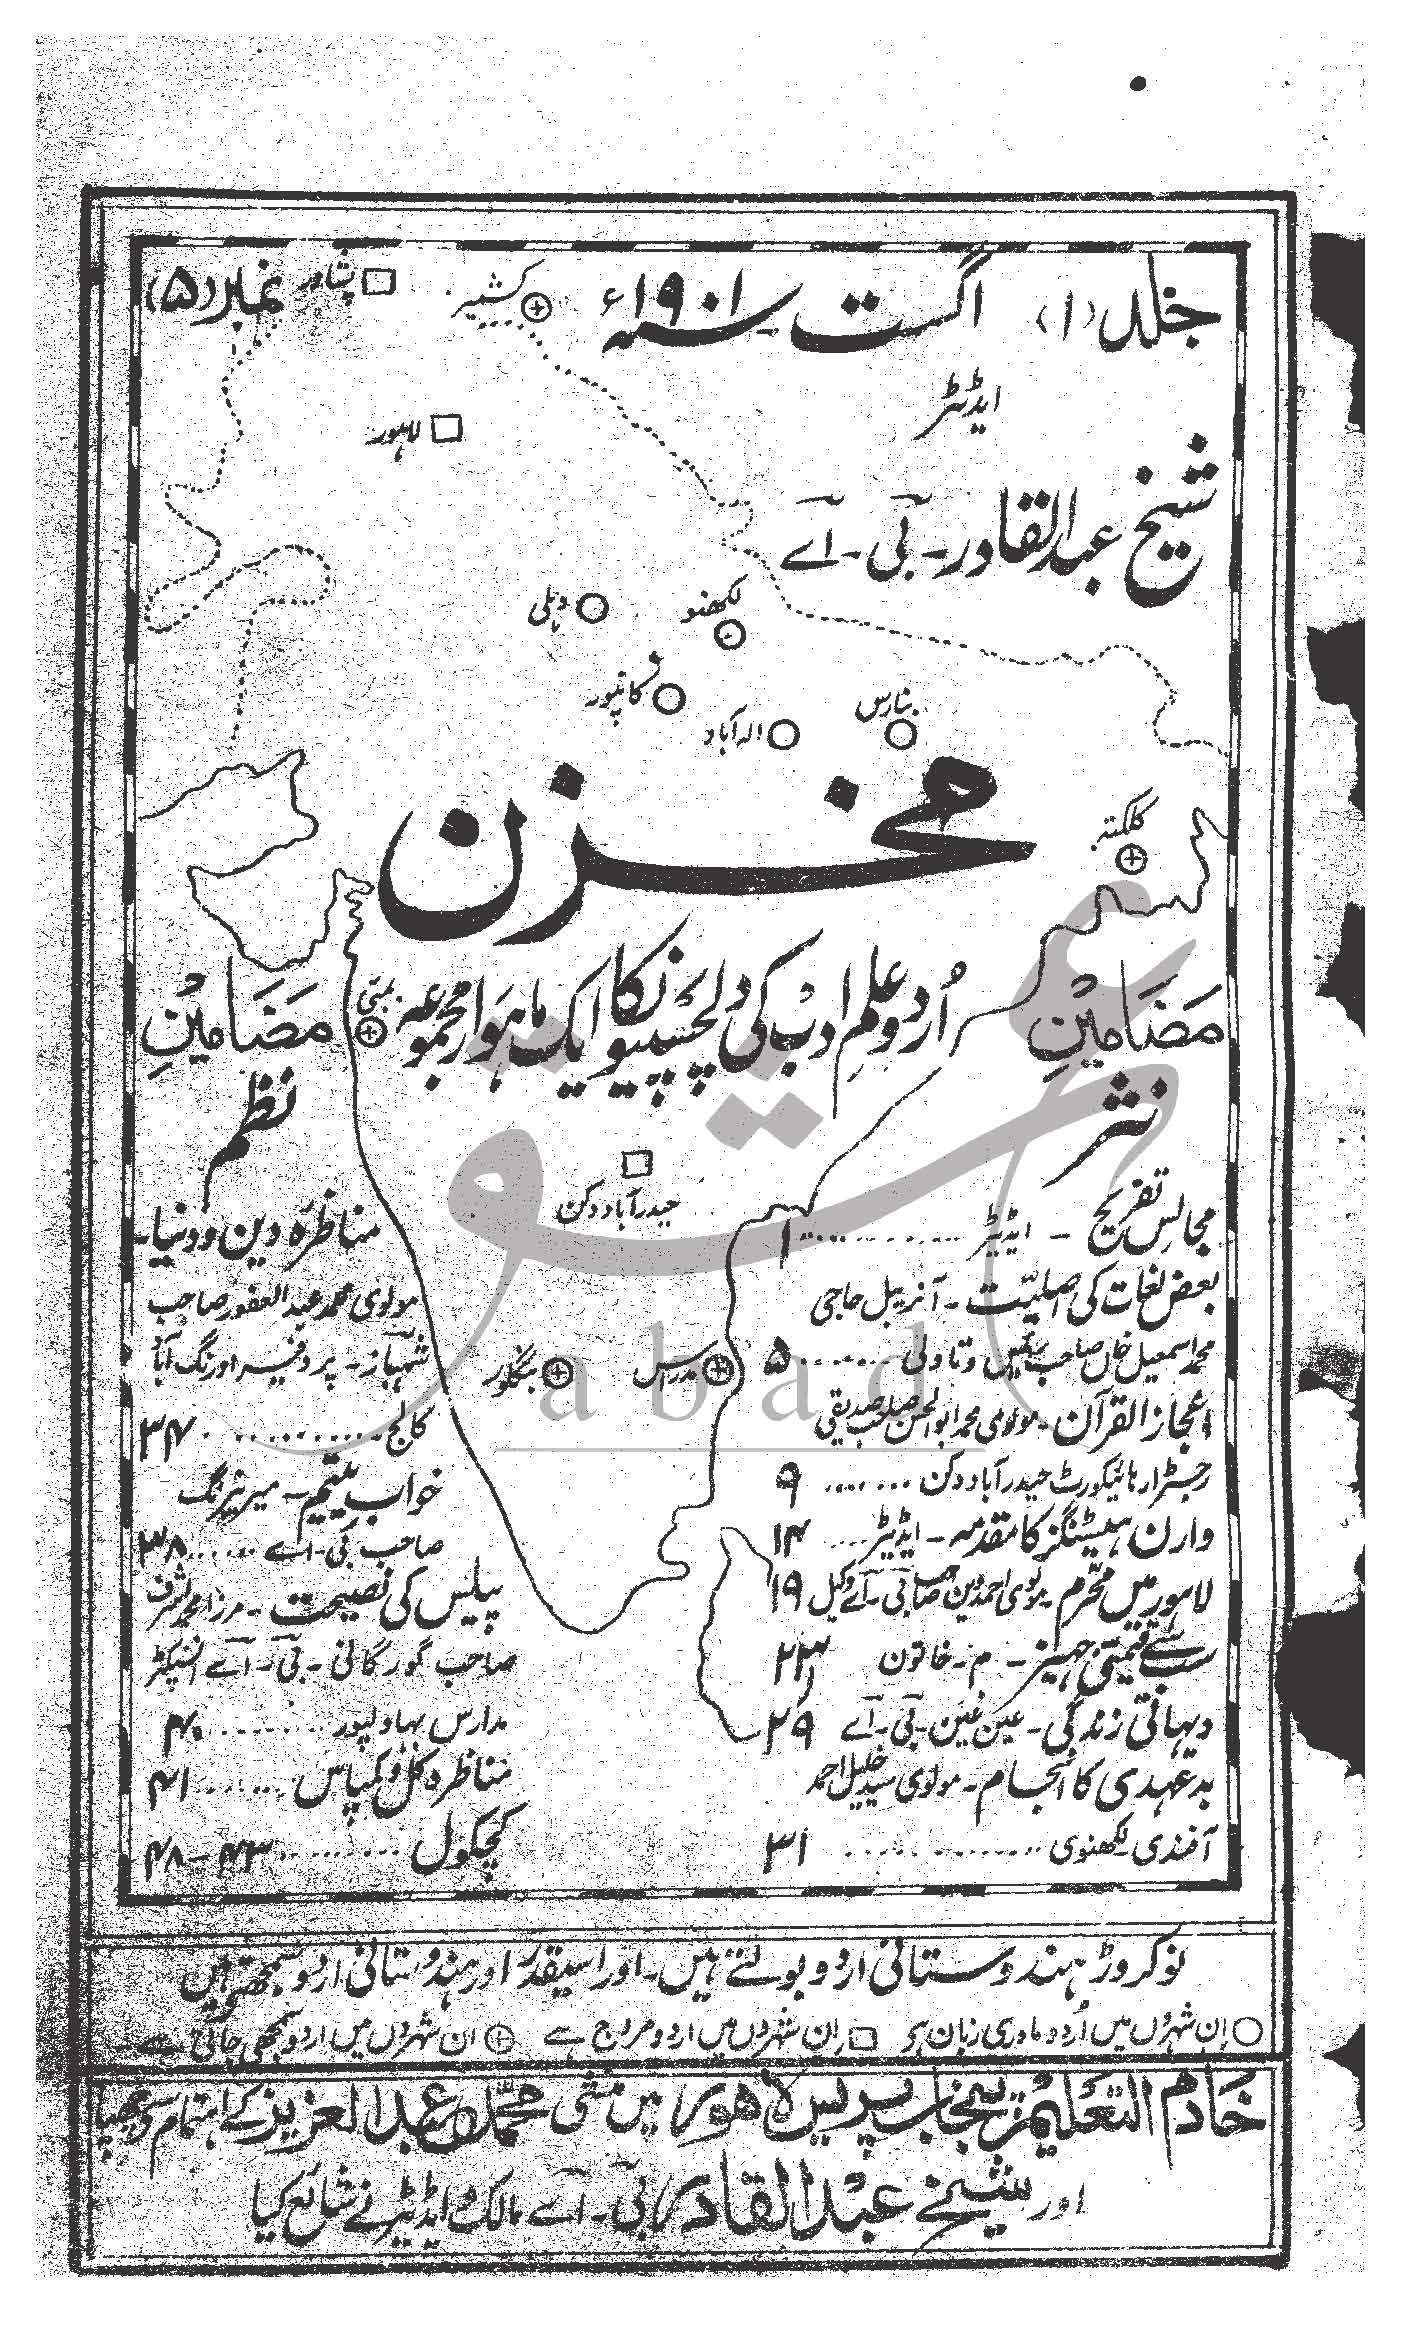 جلد (۱)
اگست سنہ ۱۹۰۱ء
کشمیر
پشاور
نمبر (۵)
لاہور
ایڈیٹر
شیخ عبدالقادر۔ بی۔ اے
دہلی
لکھنو
کانپور
الہ آباد
بنارس
کلکتہ
مخزن
اُردو علم ادب کی دلچسپیوں کا ایک ماہوار مجموعہ
بمبئی
حیدرآباد دکن
بنگلور
مدراس
مضامینِ نثر
مجالس تفریح - ایڈیٹر ........ ۱
بعض لغات کی اصلیّت - آنریبل حاجی
محمد اسمعیل خاں صاحب رئیس دتاولی ...... ۵
اعجاز القرآن - مولوی محمد ابوالحسن صاحب صدیقی
رجسٹرار ہائیکورٹ حیدرآباد دکن ...... ۹
وارن ہیسٹنگز کا مقدمہ - ایڈیٹر .... ۱۴
لاہور میں محرّم - مولوی احمد دین صاحب بی - اے وکیل ۱۹
سب سے قیمتی جہیز - م - خاتون ۲۳
دیہاتی زندگی - عین غین - بی - اے ۲۹
بدعہدی کا انجام - مولوی سید خلیل احمد
آفندی - لکھنوی .......... ۳۱
مضامینِ نظم
مناظرہ دین و دنیا -
مولوی محمد عبدالغفور صاحب
شہباز - پروفیسر اورنگ آباد
کالج ............ ۳۴
خواب یتیم - میر نیرنگ
صاحب بی - اے ...... ۳۸
پیلیس کی نصیحت - مرزا محمد اشرف
صاحب گورگانی - بی - اے انسپکٹر
مدارس بہاولپور ........ ۴۰
مناظرہ گل و کپاس ...... ۴۱
کچکول ........ ۴۳ - ۴۸
نو کروڑ ہندوستانی اردو بولتے ہیں - اور اسیقدر اور ہندوستانی اردو سمجھتے ہیں
اِن شہروں میں اُردو مادری زبان ہے اِن شہروں میں اردو مروج ہے ان شہروں میں اردو سمجھی جاتی ہے
خادم التعلیم پنجاب پریس لاہور میں منشی محمد عبدالعزیز کے اہتمام سے چھپا
اور شیخ عبدالقادر بی - اے مالک و ایڈیٹر نے شایع کیا
abad